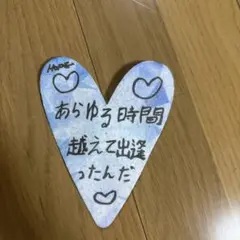 あらゆる時間
越えて出逢
ったんだ